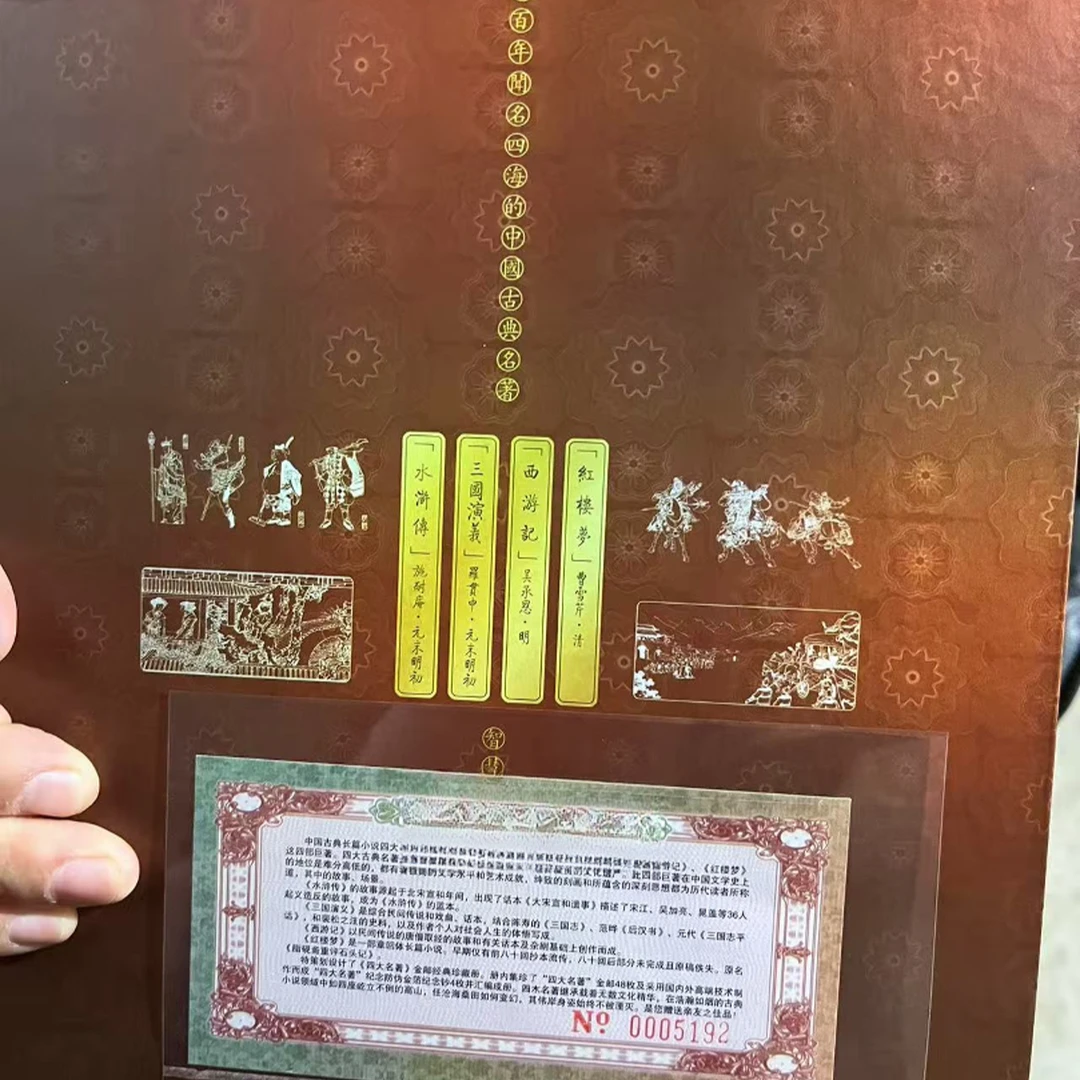 百年聞名四海的中國古典名著
「水滸傳」施耐庵·元末明初
「三國演義」羅貫中·元末明初
「西游記」吴承恩·明
「紅樓夢」曹雪芹·清
智慧
中国古典长篇小说四大
》、《红楼梦》
这四部巨著。四大古典名著
此四部巨著在中国文学史上
的地位是难分高低的，都有着很高的文学水平和艺术成就，细致的刻画和所蕴含的深刻思想都为历代读者所称
道，其中的故事、场景。
《水浒传》的故事源起于北宋宣和年间，出现了话本《大宋宣和遗事》描述了宋江、吴加亮、晁盖等36人
起义造反的故事，成为《水浒传》的蓝本。
《三国演义》是综合民间传说和戏曲、话本，结合陈寿的《三国志》、范晔《后汉书》、元代《三国志平
话》，和裴松之注的史料，以及作者个人对社会人生的体悟写成。
《西游记》以民间传说的唐僧取经的故事和有关话本及杂剧基础上创作而成。
《红楼梦》是一部章回体长篇小说。早期仅有前八十回抄本流传，八十回后部分未完成且原稿佚失。原名
《脂砚斋重评石头记》。
特策划设计了《四大名著》金邮经典珍藏册。册内集珍了“四大名著”金邮48枚及采用国内外高端技术制
作而成“四大名著”纪念防伪金箔纪念钞4枚并汇编成册。四木名著继承载着无数文化精华，在浩瀚如烟的古典
小说领域中如四座屹立不倒的高山，任沧海桑田如何变幻，其伟岸身姿始终不被湮灭。是您赠送亲友之佳品！
No 0005192